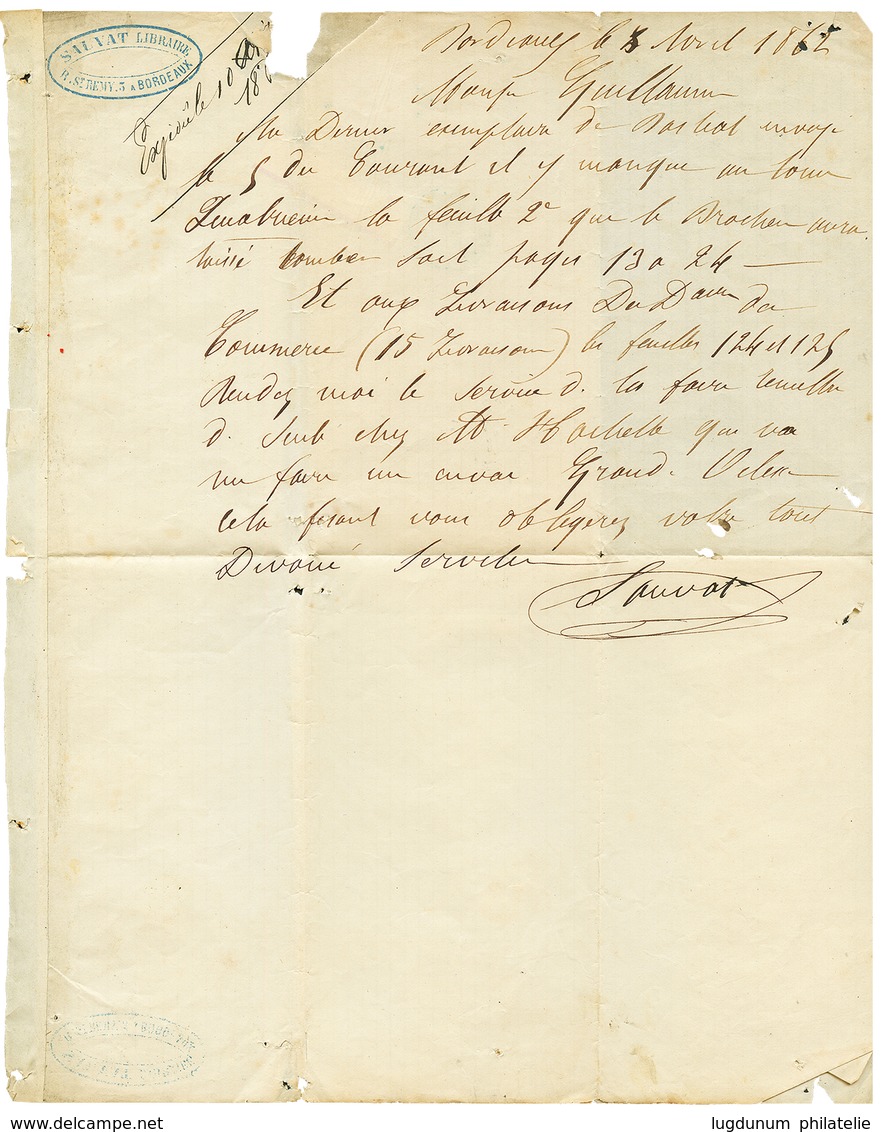 SALVAT LIBRAIRE
R. ST REMY. 5 A BORDEAUX
Expédié le 10
Bordeaux le 8 Avril 1862
Monsr Guillaumin
Au Dernier exemplaire de Bastiat envoyé
le 5 du Courant il y manque au tome
la feuille 2e que le Brocheur aura
laissé tomber soit pages 13 a 24 —
Et aux Livraisons Du Dictre du
Commerce (15 Livraison) les feuilles 124 et 125
Rendez moi le service de les faire remettre
de suite chez Mr Hachette qui va
me faire un envoi Grande Vitesse
cela fesant vous obligerez votre tout
Devoué Serviteur
Sauvat
lugdunum philatelie